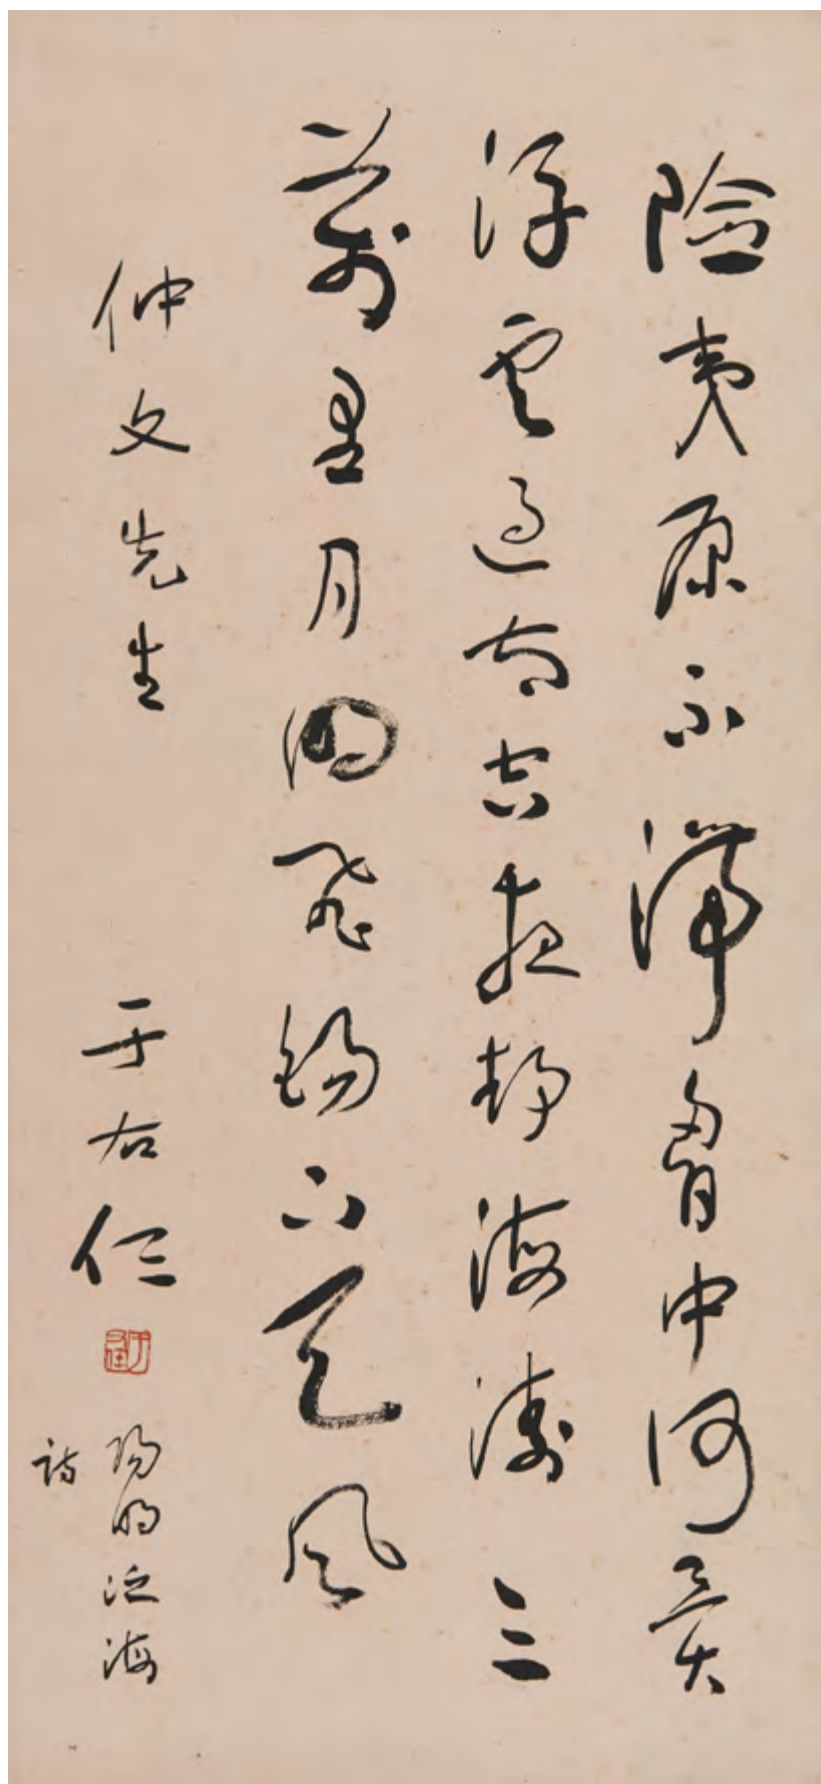 險夷原不滯胷中何異
浮雲過太空夜靜海濤三
萬里月明飛錫下天風
仲文先生
于右任
陽明泛海
詩